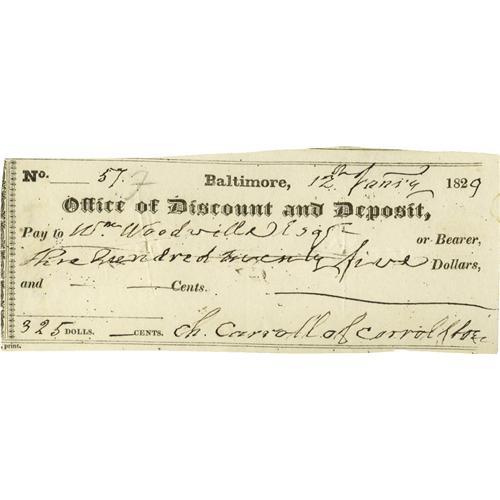 No. 57. Baltimore, 12th Jan'ry 1829
Office of Discount and Deposit,
Pay to Wm Woodville Esqr or Bearer,
Three hundred twenty five Dollars,
and — Cents.
325 DOLLS. — CENTS. Ch. Carroll of Carrollton
print.